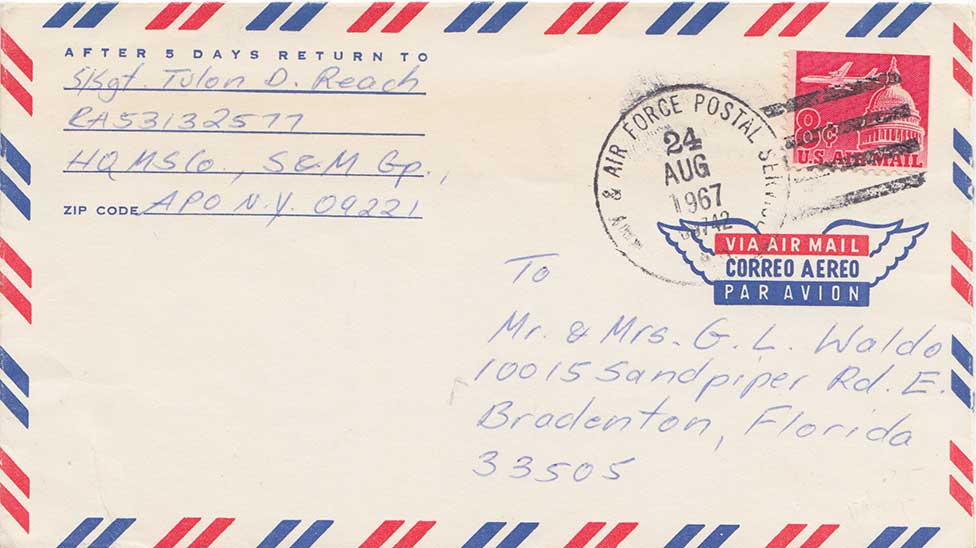 AFTER 5 DAYS RETURN TO
S/Sgt. Tulon D. Reach
RA53132577
HQ MSCo., S&M Gp.,
ZIP CODE APO N.Y. 09221
& AIR FORCE POSTAL SERVICE
24
AUG
1967
8¢
U.S. AIR MAIL
VIA AIR MAIL
CORREO AEREO
PAR AVION
To
Mr. & Mrs. G. L. Waldo
10015 Sandpiper Rd. E.
Bradenton, Florida
33505